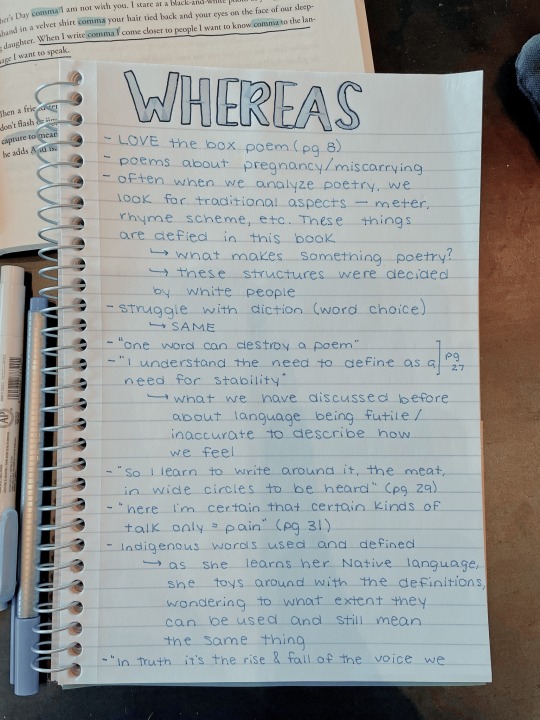 her's Day comma I am not with you. I stare at a black-and-white
band in a velvet shirt comma your hair tied back and your eyes on the face of our sleep-
g daughter. When I write comma I come closer to people I want to know comma to the lan-
age I want to speak.
don't flash
capture to mean
he adds
WHEREAS
- LOVE the box poem (pg 8)
- poems about pregnancy/miscarrying
- often when we analyze poetry, we
look for traditional aspects — meter,
rhyme scheme, etc. These things
are defied in this book
↳ what makes something poetry?
↳ these structures were decided
by white people
- struggle with diction (word choice)
↳ SAME
- "one word can destroy a poem"
- "I understand the need to define as a] pg 27
need for stability"
↳ what we have discussed before
about language being futile/
inaccurate to describe how
we feel
- "So I learn to write around it, the meat,
in wide circles to be heard" (pg 29)
- "here I'm certain that certain kinds of
talk only = pain" (pg 31)
- Indigenous words used and defined
↳ as she learns her Native language,
she toys around with the definitions,
wondering to what extent they
can be used and still mean
the same thing
- "In truth it's the rise & fall of the voice we